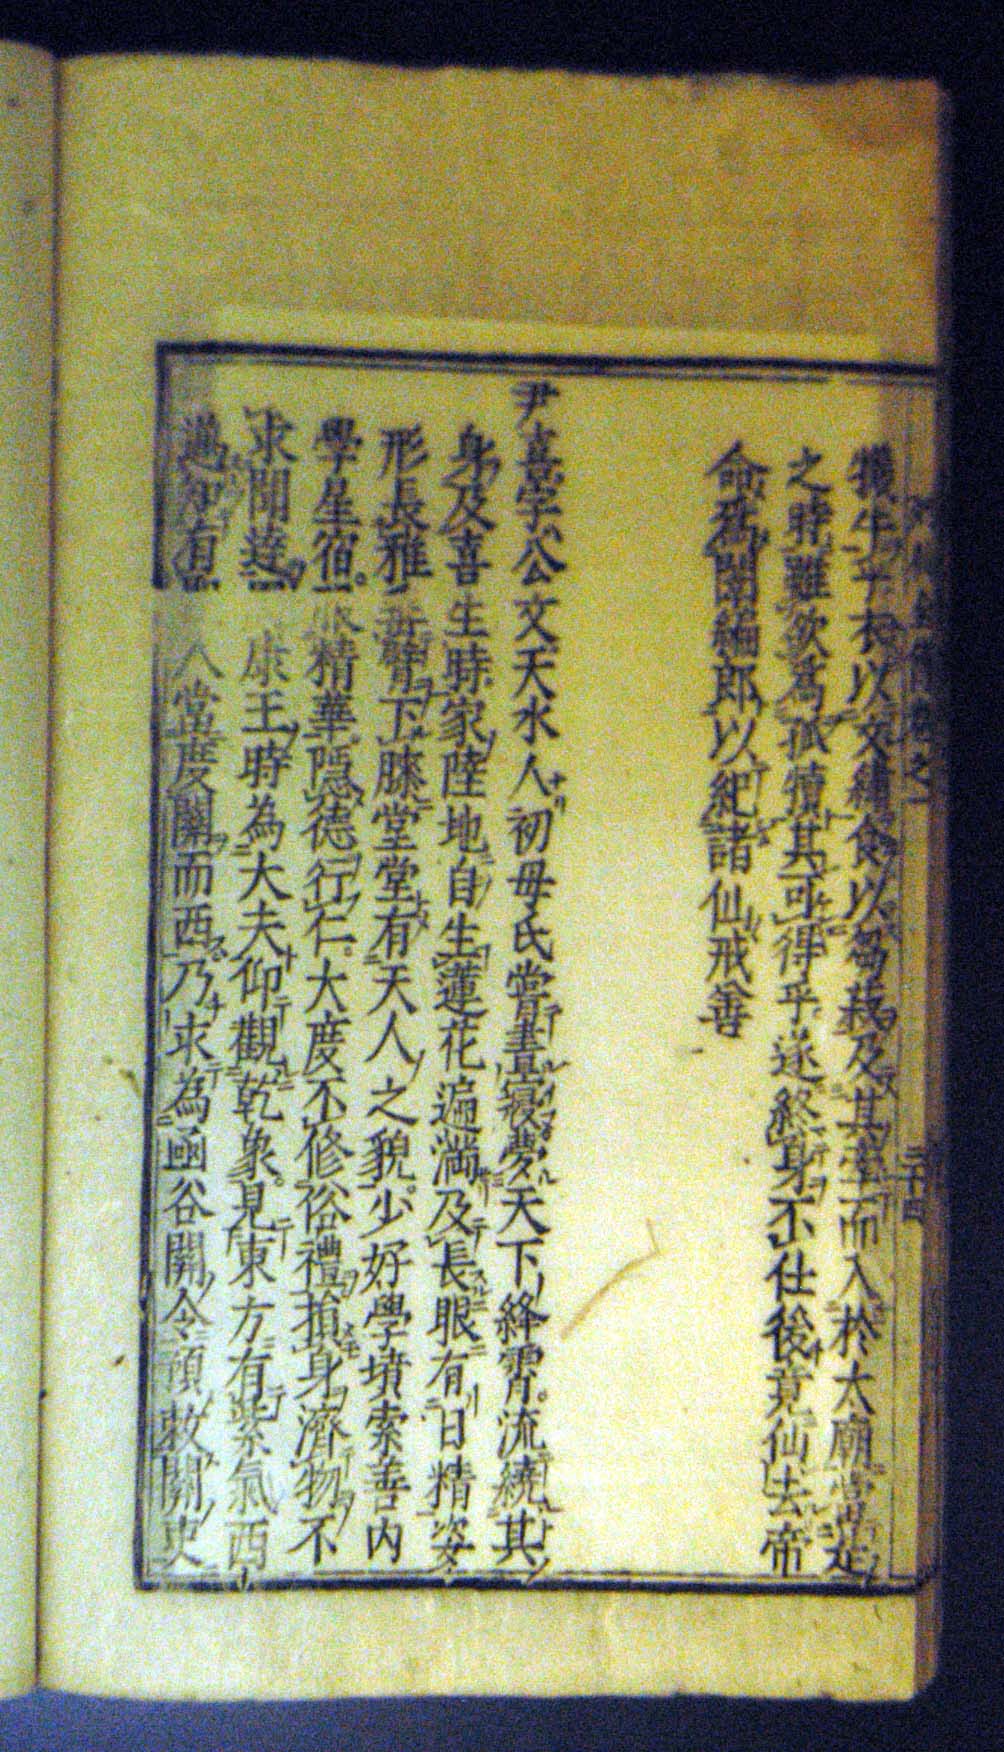 犧牛乎衣以文繡食以芻菽及其牽而入於太廟當是
之時雖欲爲孤犢其可得乎遂終身不仕後竟仙去帝
命爲闈編郎以紀諸仙戒善
尹喜字公文天水人初母氏嘗晝寢夢天下絳霄流繞其
身及喜生時家陸地自生蓮花遍滿及長眼有日精姿
形長雅垂臂下膝堂堂有天人之貌少好學墳索善內
學星宿服精華隱德行仁大度不修俗禮損身濟物不
求聞達康王時為大夫仰觀乾象見東方有紫氣西
邁知有人當度關而西乃求為函谷關令預敕關吏
三十四